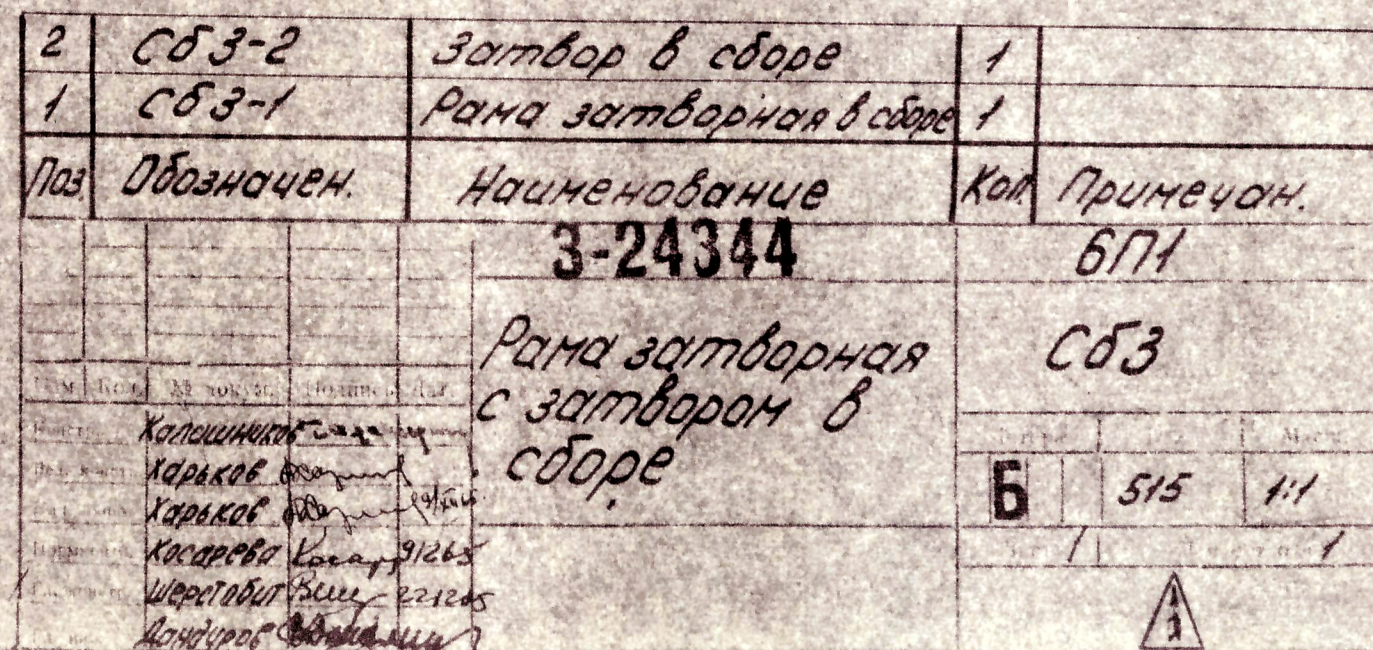 2 Сб 3-2 Затвор в сборе 1
1 Сб 3-1 Рама затворная в сборе 1
Поз. Обозначен. Наименование Кол. Примечан.
3-24344
6П1
Рама затворная
с затвором в
сборе
Сб3
№ докум. Подпись Дат.
Калашников
Харьков
Харьков
Косарева
Шерстобит
Б 515 1:1
1 1